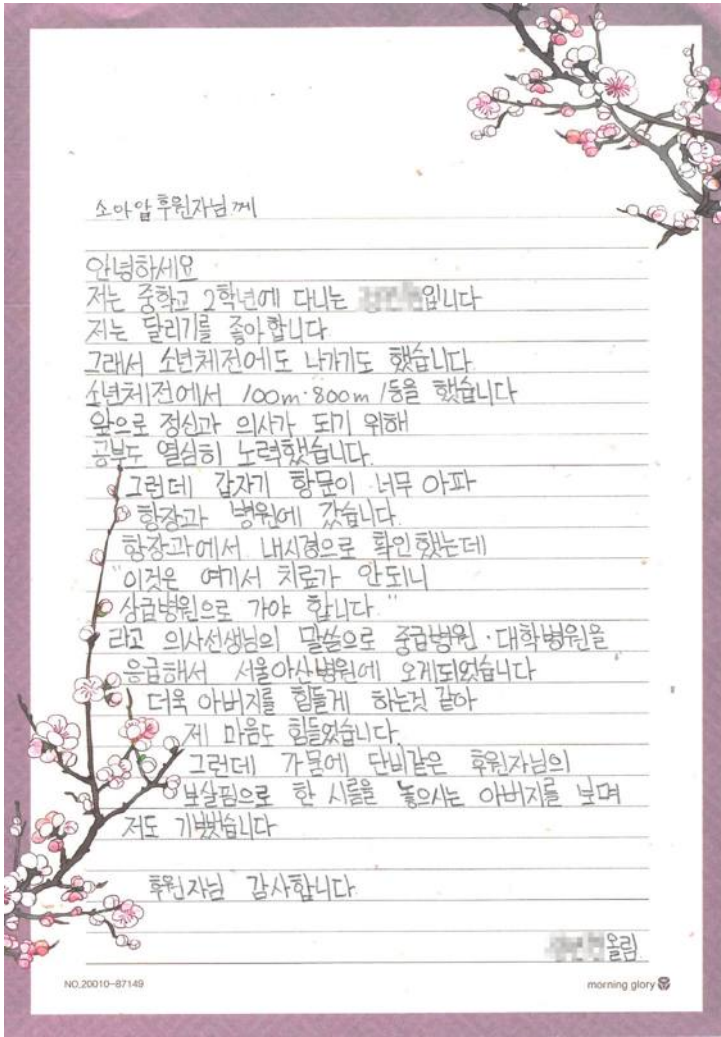 소아암 후원자님께
안녕하세요
저는 중학교 2학년에 다니는 입니다
저는 달리기를 좋아합니다
그래서 소년체전에도 나가기도 했습니다
소년체전에서 100m·800m 1등을 했습니다
앞으로 정신과 의사가 되기 위해
공부도 열심히 노력했습니다.
그런데 갑자기 항문이 너무 아파
항장과 병원에 갔습니다.
항장과에서 내시경으로 확인했는데
"이것은 여기서 치료가 안되니
상급병원으로 가야 합니다."
라고 의사선생님의 말씀으로 중급병원·대학병원을
응급해서 서울아산병원에 오게되었습니다
더욱 아버지를 힘들게 하는것 같아
제 마음도 힘들었습니다.
그런데 가뭄에 단비같은 후원자님의
보살핌으로 한 시름을 놓으시는 아버지를 보며
저도 기뻤습니다
후원자님 감사합니다
올림
NO.20010-87149
morning glory